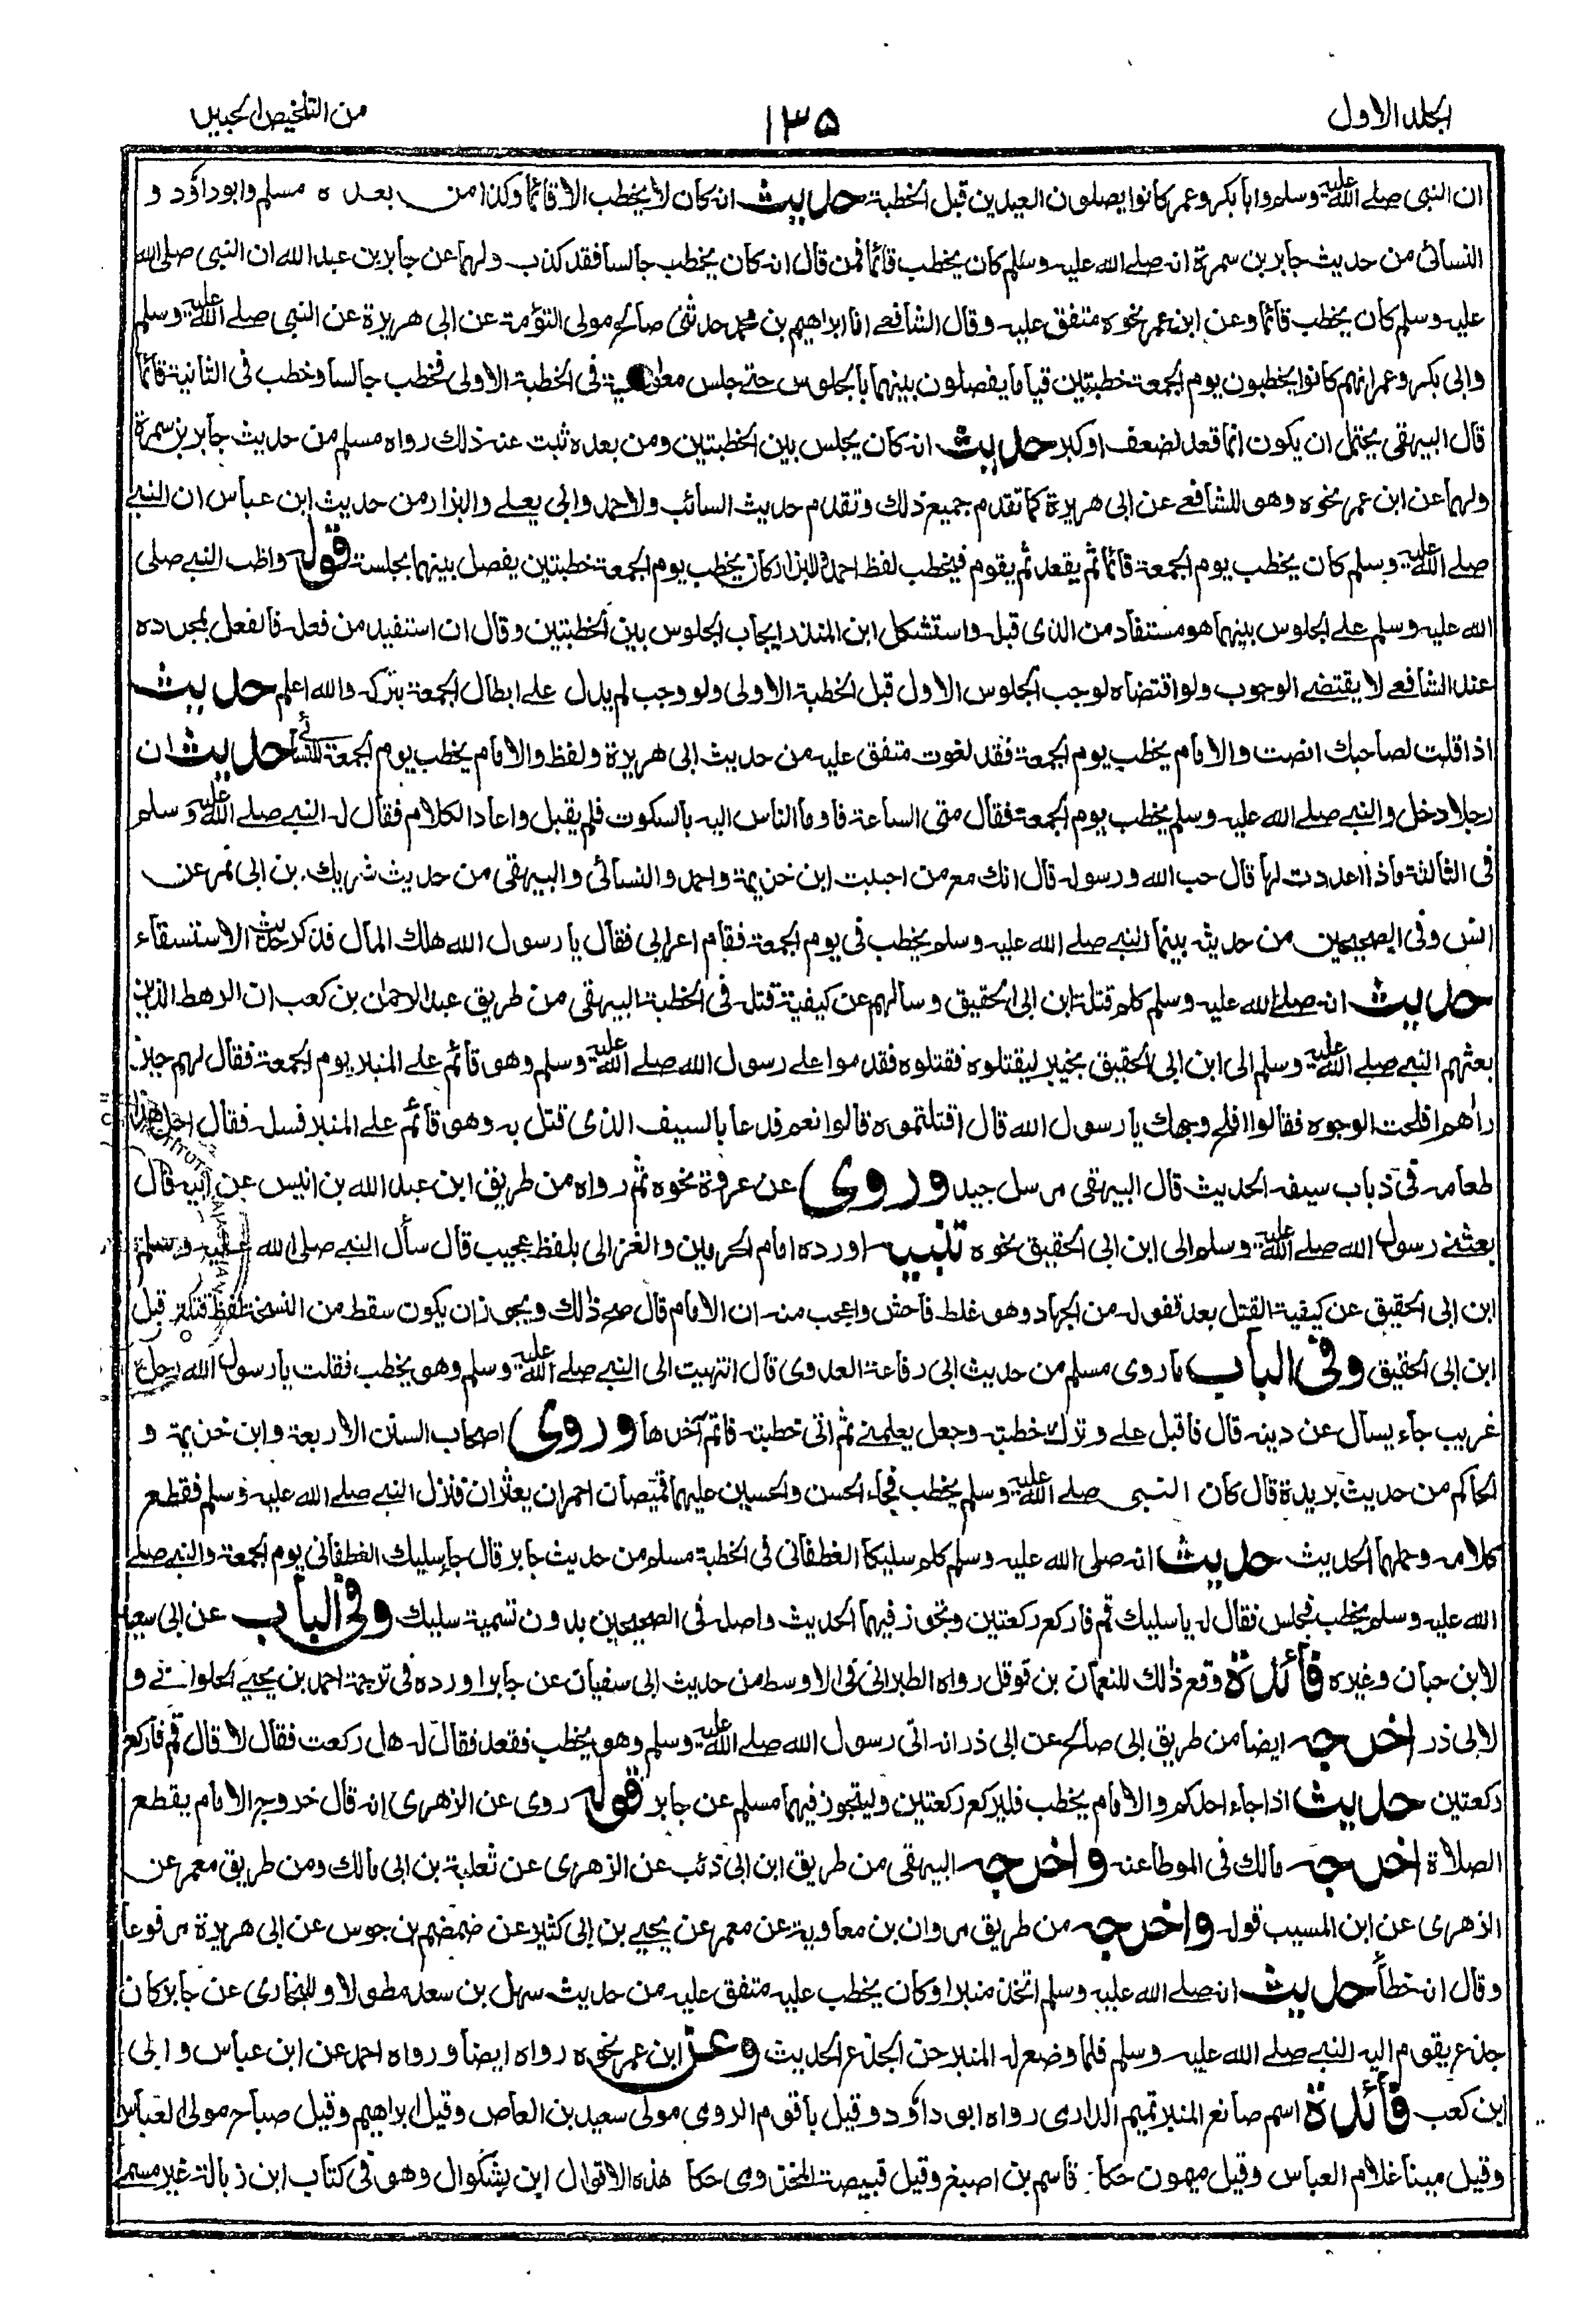 الجلد الاول
١٣٥
من التلخيص الحبير
ان النبى صلے الله عليه وسلم وابا بكر وعمر كانوا يصلون العيدين قبل الخطبة حديث انه كان لا يخطب الا قائما وكذا من بعده مسلم وابو داؤد و
النسائى من حديث جابر بن سمرة انه صلے الله عليه وسلم كان يخطب قائما فمن قال انه كان يخطب جالسا فقد كذب ولهما عن جابر بن عبد الله ان النبى صلى الله
عليه وسلم كان يخطب قائما وعن ابن عمر نحوه متفق عليه وقال الشافعے انا ابراهيم بن محمد حدثنى صالح مولى التؤمة عن ابى هريرة عن النبى صلے الله عليه وسلم
وابى بكر وعمر انهم كانوا يخطبون يوم الجمعة خطبتين قياما يفصلون بينهما بالجلوس حتے جلس معاوية فى الخطبة الاولى فخطب جالسا وخطب فى الثانية قائما
قال البيهقى يحتمل ان يكون انما قعد لضعف او كبر حديث انه كان يجلس بين الخطبتين ومن بعده ثبت عنه ذلك رواه مسلم من حديث جابر بن سمرة
ولهما عن ابن عمر نحوه وهو للشافعے عن ابى هريرة كما تقدم جميع ذلك وتقدم حديث السائب ولاحمد وابى يعلے والبزار من حديث ابن عباس ان النبے
صلے الله عليه وسلم كان يخطب يوم الجمعة قائما ثم يقعد ثم يقوم فيخطب لفظ احمد وللبزار كان يخطب يوم الجمعة خطبتين يفصل بينهما بجلسة قوله واظب النبے صلى
الله عليه وسلم علے الجلوس بينهما هو مستفاد من الذى قبله واستشكل ابن المنذر ايجاب الجلوس بين الخطبتين وقال ان استفيد من فعله فالفعل بمجرده
عند الشافعے لا يقتضے الوجوب ولو اقتضاه لوجب الجلوس الاول قبل الخطبة الاولى ولو وجب لم يدل علے ابطال الجمعة بتركه والله اعلم حديث
اذا قلت لصاحبك انصت والامام يخطب يوم الجمعة فقد لغوت متفق عليه من حديث ابى هريرة ولفظ والامام يخطب يوم الجمعة للنسائے حديث ان
رجلا دخل والنبے صلے الله عليه وسلم يخطب يوم الجمعة فقال متى الساعة فاوما الناس اليه بالسكوت فلم يقبل واعاد الكلام فقال له النبے صلے الله عليه وسلم
فى الثالثة ماذا اعددت لها قال حب الله ورسوله قال انك مع من احببت ابن خزيمة واحمد والنسائى والبيهقى من حديث شريك بن ابى نمر عن
انس وفى الصحيحين من حديثه بينما النبے صلے الله عليه وسلم يخطب فى يوم الجمعة فقام اعرابى فقال يا رسول الله هلك المال فذكر حديث الاستسقاء
حديث انه صلے الله عليه وسلم كلم قتلة ابن ابى الحقيق وسالهم عن كيفية قتله فى الخطبة البيهقى من طريق عبد الرحمان بن كعب ان الرهط الذين
بعثهم النبے صلے الله عليه وسلم الى ابن ابى الحقيق بخيبر ليقتلوه فقتلوه فقدموا على رسول الله صلے الله عليه وسلم وهو قائم علے المنبر يوم الجمعة فقال لهم حين
راهم افلحت الوجوه فقالوا افلح وجهك يا رسول الله قال اقتلتموه قالوا نعم فدعا بالسيف الذى قتل به وهو قائم علے المنبر فسله فقال اجل هذا
طعامه فى ذباب سيفه الحديث قال البيهقى مرسل جيد وروى عن عروة نحوه ثم رواه من طريق ابن عبد الله بن انيس عن ابيه قال
بعثنے رسول الله صلے الله عليه وسلم الى ابن ابى الحقيق نحوه تنبيه اورده امام الحرمين والغزالى بلفظ عجيب قال سأل النبے صلى الله عليه وسلم
ابن ابى الحقيق عن كيفية القتل بعد قفوله من الجهاد وهو غلط فاحش واعجب منه ان الامام قال صح ذلك ويجوز ان يكون سقط من النسخة لفظ قتلة قبل
ابن ابى الحقيق وفى الباب ما روى مسلم من حديث ابى رفاعة العدوى قال انتهيت الى النبے صلے الله عليه وسلم وهو يخطب فقلت يا رسول الله رجل
غريب جاء يسأل عن دينه قال فاقبل علے وترك خطبته وجعل يعلمنے ثم اتى خطبته فاتم آخرها وروى اصحاب السنن الاربعة وابن خزيمة و
الحاكم من حديث بريدة قال كان النبى صلے الله عليه وسلم يخطب فجاء الحسن والحسين عليهما قميصان احمران يعثران فنزل النبے صلے الله عليه وسلم فقطع
كلامه وحملهما الحديث حديث انه صلى الله عليه وسلم كلم سليكا الغطفانى فى الخطبة مسلم من حديث جابر قال جاء سليك الغطفانى يوم الجمعة والنبے صلے
الله عليه وسلم يخطب فجلس فقال له يا سليك قم فاركع ركعتين وتجوز فيهما الحديث واصله فى الصحيحين بدون تسمية سليك وفى الباب عن ابى سعيد
لابن حبان وغيره فائدة وقع ذلك للنعمان بن قوقل رواه الطبرانى فى الاوسط من حديث ابى سفيان عن جابر اورده فى ترجمة احمد بن يحيے الحلوانے و
لابى ذر اخرجه ايضا من طريق ابى صالح عن ابى ذر انه اتى رسول الله صلے الله عليه وسلم وهو يخطب فقعد فقال له هل ركعت فقال لا قال قم فاركع
ركعتين حديث اذا جاء احدكم والامام يخطب فليركع ركعتين وليتجوز فيهما مسلم عن جابر قوله روى عن الزهرى انه قال خروج الامام يقطع
الصلاة اخرجه مالك فى الموطا عنه واخرجه البيهقى من طريق ابن ابى ذئب عن الزهرى عن ثعلبة بن ابى مالك ومن طريق معمر عن
الزهرى عن ابن المسيب قوله واخرجه من طريق مروان بن معاوية عن معمر عن يحيے بن ابى كثير عن ضمضم بن جوس عن ابى هريرة مرفوعا
وقال انه خطأ حديث انه صلے الله عليه وسلم اتخذ منبرا وكان يخطب عليه متفق عليه من حديث سهل بن سعد مطولا وللبخارى عن جابر كان
جذع يقوم اليه النبے صلے الله عليه وسلم فلما وضع له المنبر حن الجذع الحديث وعن ابن عمر نحوه رواه ايضا ورواه احمد عن ابن عباس وابى
ابن كعب فائدة اسم صانع المنبر تميم الدارى رواه ابو داؤد وقيل باقوم الرومى مولى سعيد بن العاص وقيل ابراهيم وقيل صباح مولى العباس
وقيل مينا غلام العباس وقيل ميمون حكاه قاسم بن اصبغ وقيل قبيصة المخزومى حكا هذه الاقوال ابن بشكوال وهو فى كتاب ابن زبالة غير مسمے